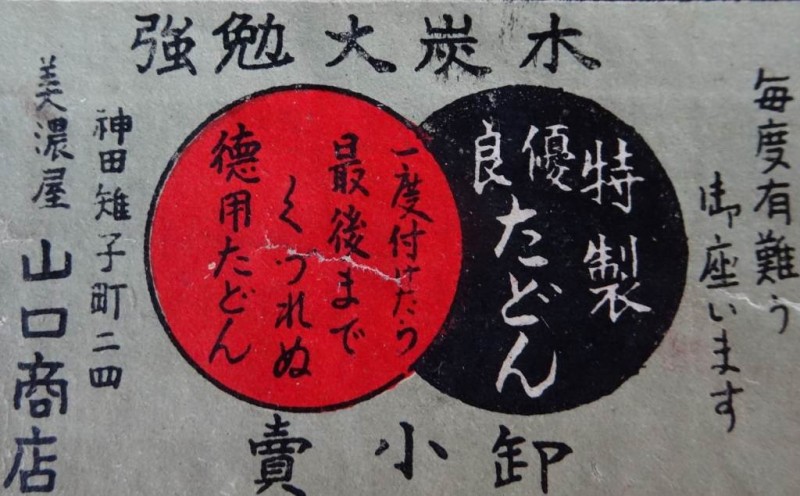 木炭大勉強
毎度有難う
御座います
特製
優良たどん
一度付けたら
最後まで
くづれぬ
徳用たどん
卸小賣
神田雉子町二四
美濃屋 山口商店